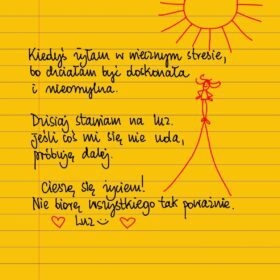 Kiedyś żyłam w wiecznym stresie,
bo chciałam być doskonała
i nieomylna.
Dzisiaj stawiam na luz.
Jeśli coś mi się nie uda,
próbuję dalej.
Cieszę się życiem!
Nie biorę wszystkiego tak poważnie.
Luz